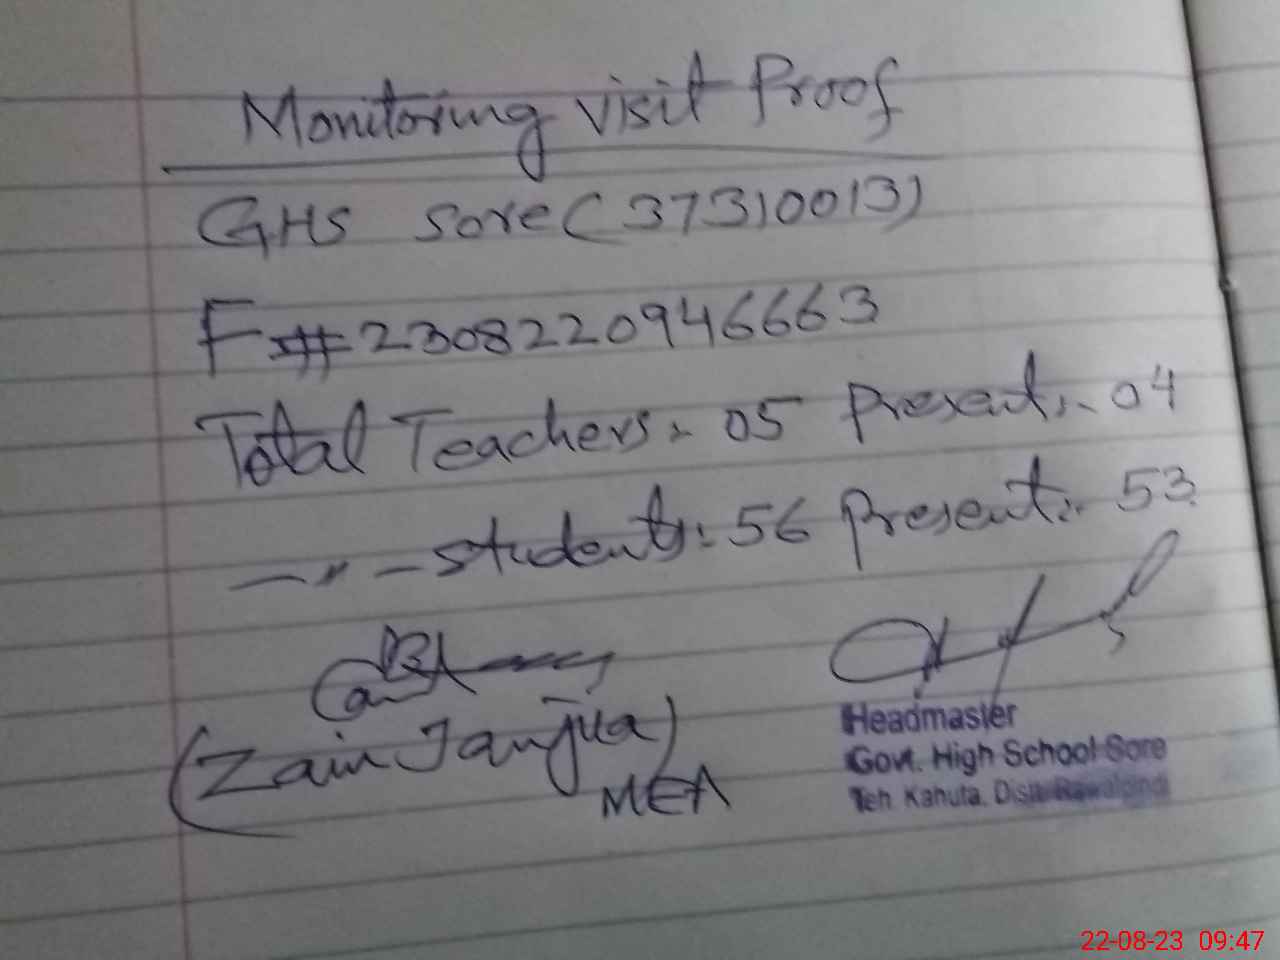 Monitoring Visit Proof
GHS Sore (37310013)
F# 2308220946663
Total Teachers:- 05 Present:- 04
—〃— Students:- 56 Present:- 53
(Zain Janjua)
MEA
Headmaster
Govt. High School Sore
Teh. Kahuta. Distt. Rawalpindi
22-08-23 09:47